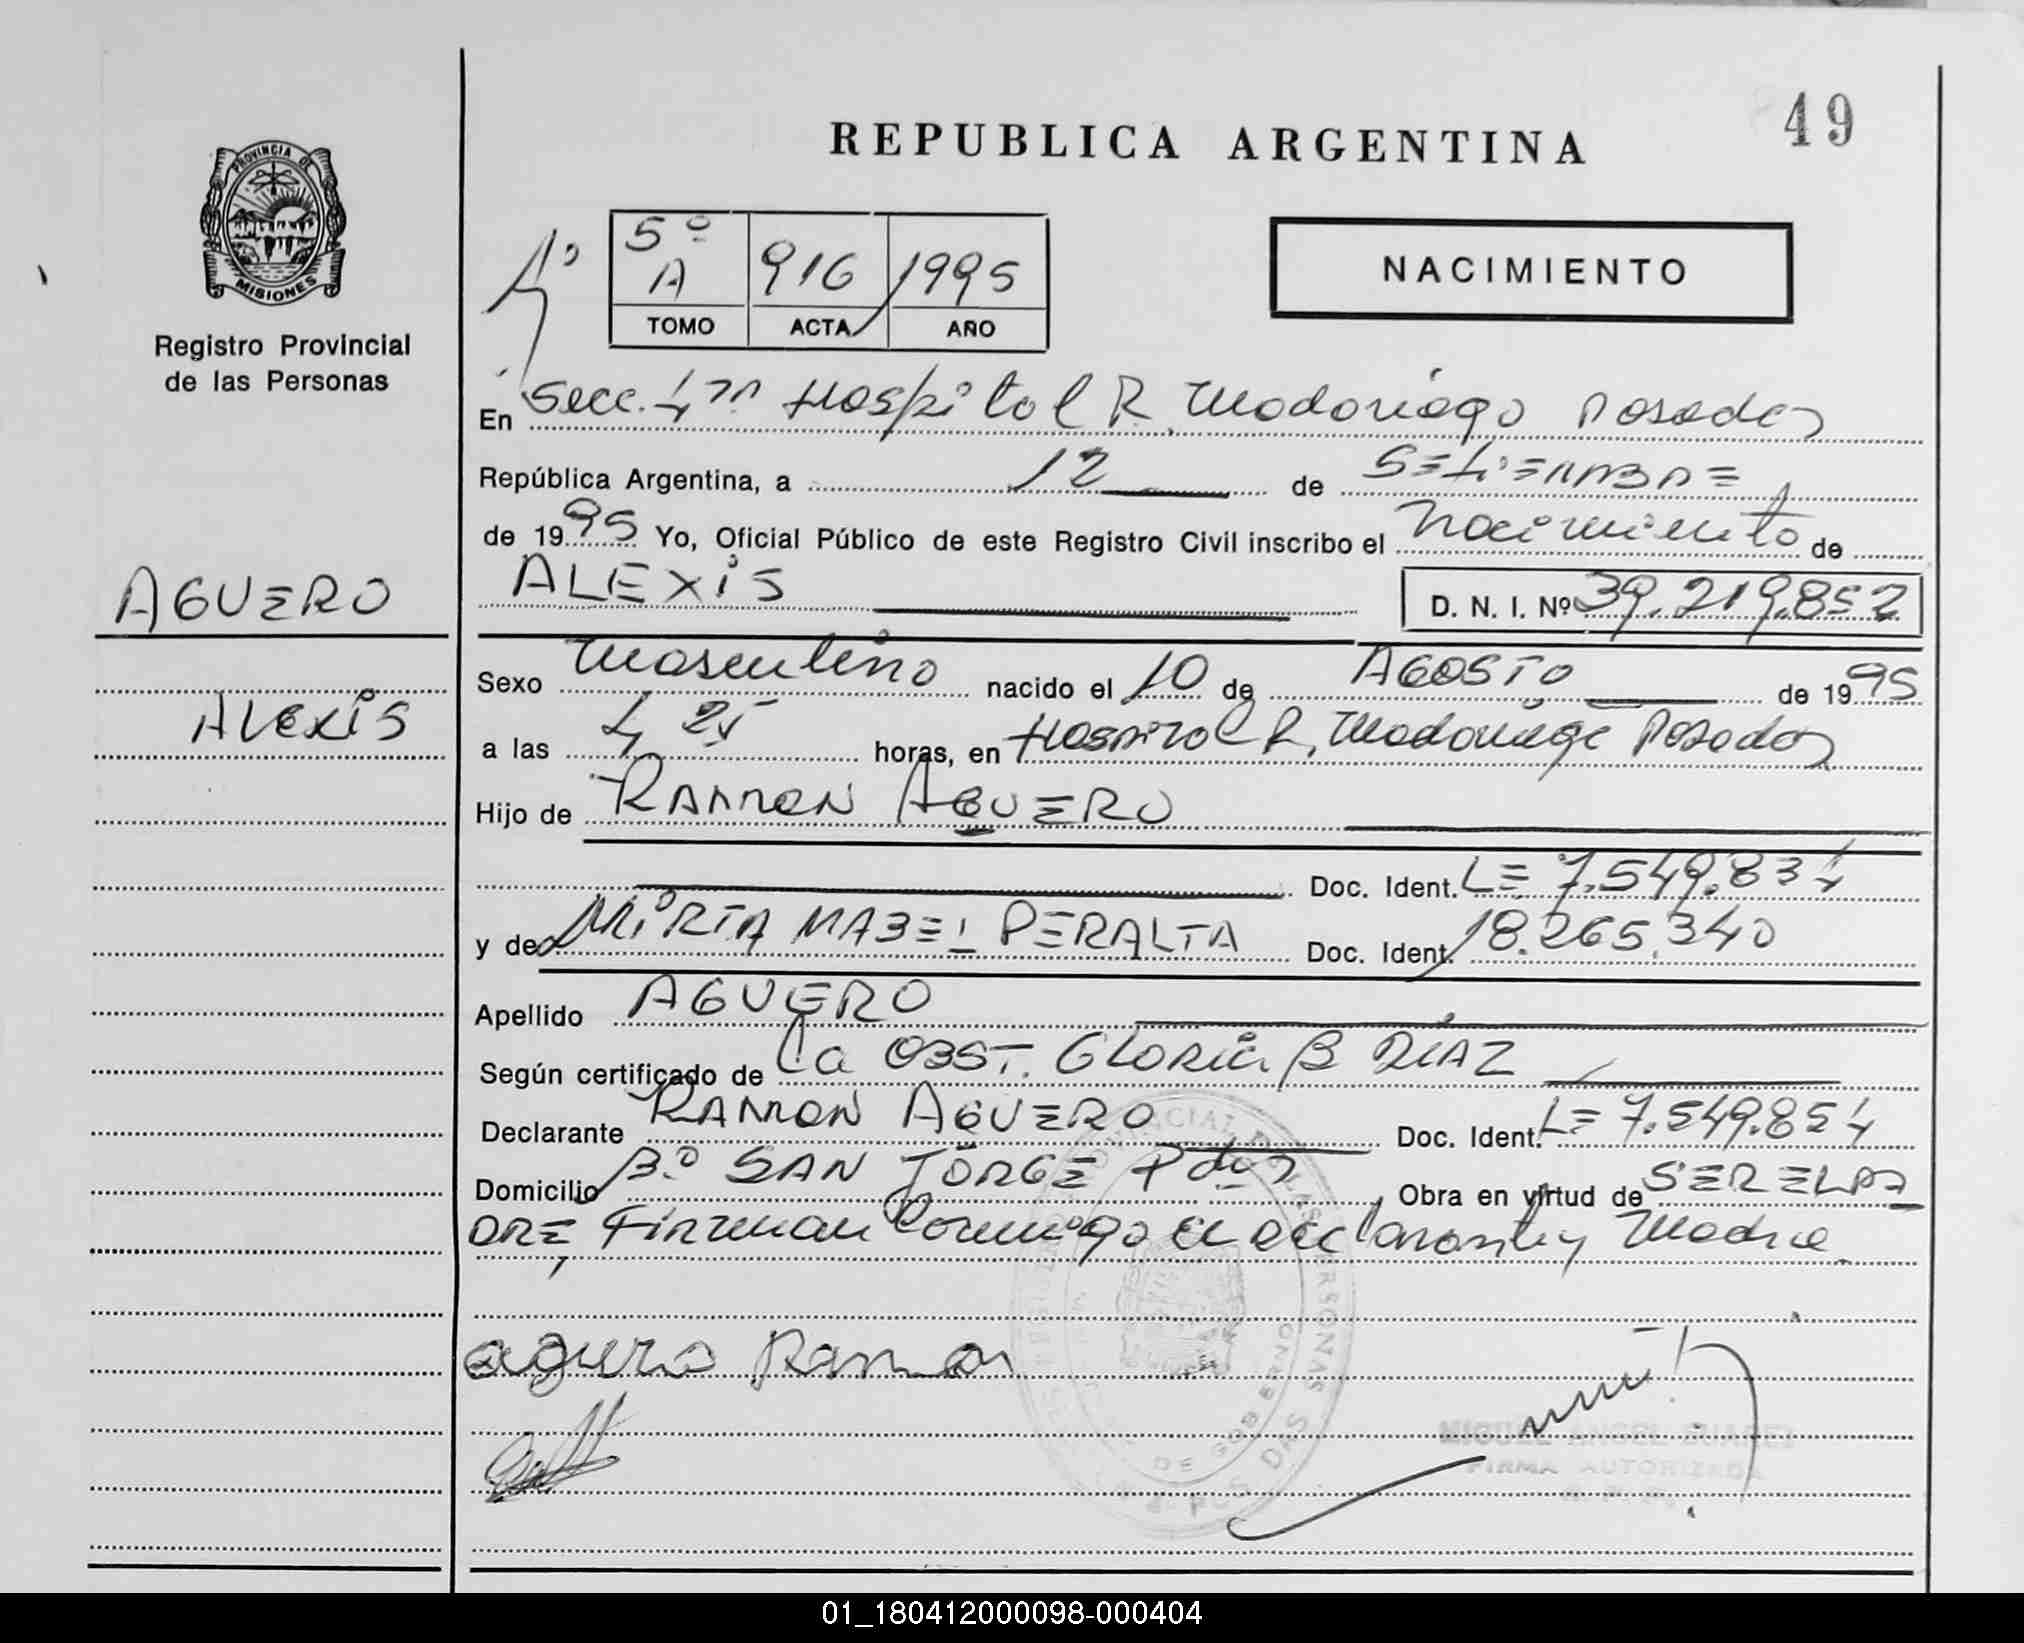 49
REPUBLICA ARGENTINA
PROVINCIA DE
MISIONES
Registro Provincial
de las Personas
5º
A 916 1995
TOMO ACTA AÑO
NACIMIENTO
En Secc. 4ª Hospital R. Madariaga Posadas
República Argentina, a 12 de SETIEMBRE
de 1995 Yo, Oficial Público de este Registro Civil inscribo el Nacimiento de
AGUERO
ALEXIS D. N. I. Nº 39.219.852
Sexo Masculino nacido el 10 de AGOSTO de 1995
ALEXIS
a las 4 25 horas, en Hospital R. Madariaga Posadas
Hijo de RAMON AGUERO
Doc. Ident. LE 7.549.834
y de MIRTA MABEL PERALTA Doc. Ident. 18.265.340
Apellido AGUERO
Según certificado de La OBST. GLORIA B DIAZ
Declarante RAMON AGUERO Doc. Ident. LE 7.549.854
Domicilio Bº SAN JORGE Pdas Obra en virtud de SER EL PA
DRE, Firman Conmigo el declarante y Madre
aguero Ramon
MIGUEL ANGEL SUAREZ
FIRMA AUTORIZADA
01_180412000098-000404